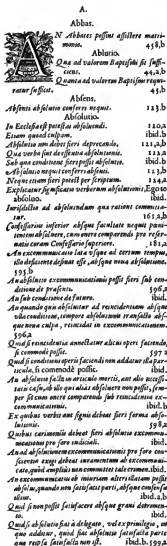 A.
Abbas.
AN Abbates possint assistere matri-
monio. 458,b
Ablutio.
Qua ad valorem Baptismi sit suffi-
ciens. 44,2,b
Quænia ad valorem Baptismi requi-
ratur sufficit. 45,b
Absens.
Absenti absolutio conferri nequit. 123.b
Absolutio.
In Ecclesia est potestas absoluendi. 120,2
Etiam quoad culpam. ibid. b
Absolutio non debet fieri deprecando. 121,2,b
Quæ verba sint de essentia absolutionis. 122,2
Sub qua conditione fieri possit absolutio. ibid.b
Absolutio nequit conferri absenti. 123.b
Neque etiam fieri potest per scriptum. 124,2
Explicatur significatio verborum absolutionis, Ego te
absoluo. ibid.
Iurisdictio ad absoluendum qua ratione commissa-
tur. 161.2,b
Confessarius inferior absque facultate nequit pœni-
tentem absoluere, cum onere comparendi pro reser-
natis coram Confessario superiore. 181,2
An excommunicatio lata usque ad certum tempus,
illo deficiente desinat esse, absque noua absolutione.
595.b
An absolutio excommunicationis possit fieri sub con-
ditione de præsenti. 596,2
An sub conditione de futuro. ibid.
An quando quis absoluitur ad reincidentiam absque
vlla conditione, tempore absolutionis transacto abs-
que noua culpa, reincidat in excommunicationem.
596,2
Quid si reincidentia annectatur alicui operi faciendo,
si commodè possit. 597,2
Quid si conditio operis faciendi non addatur illa par-
ticula, si commodè possit. ibid.
An absolutus facta in articulo mortis, aut alio necessi-
tatis casu, ab illo qui alias absoluere non posset, sem-
per sit cum onere comparendi sub reincidentia ex-
communicationis. ibid.
Ex quibus verbis aut signis debeat fieri forma abso-
lutionis. 598,2
Quibus cæremoniis debeat fieri absolutio excommu-
nicationis pro foro indiciali. ibid.
An ad absolutionem excommunicationis pro foro con-
scientiæ exigi debeat iuramentum ab excommuni-
cato, quòd amplius non committet tale crimen. ibid.
An excommunicatus ob iniuriam alteri illatam possit
absolui, quando non satisfacit parti, absque consensu
illius. ibid.a,b
Quid si non possit satisfacere absque graui detrimen-
to. ibid.
Quid si absolutio fiat à delegato, vel ex priuilegio, in
quo additur, quòd fiat absolutio satisfacta parte, an
que reipsa satisfacta non sit. ibid.b.599,2